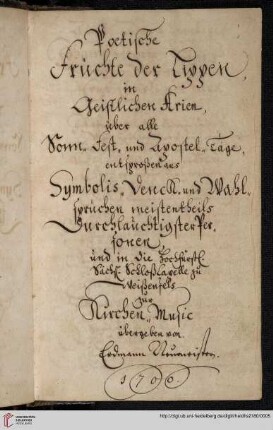 Poetische
Früchte der Lippen,
in
Geistlichen Arien,
über alle
Sonn- Fest- und Apostel-Tage,
entsproßen aus
Symbolis, Denck- und Wahl-
sprüchen meistentheils
Durchlauchtigster Per-
sonen,
und in die Hochfürstl.
Sächs. Schloß Capelle zu
Weißenfels
zur
Kirchen-Music
übergeben von
Erdmann Neumeistern.
1706